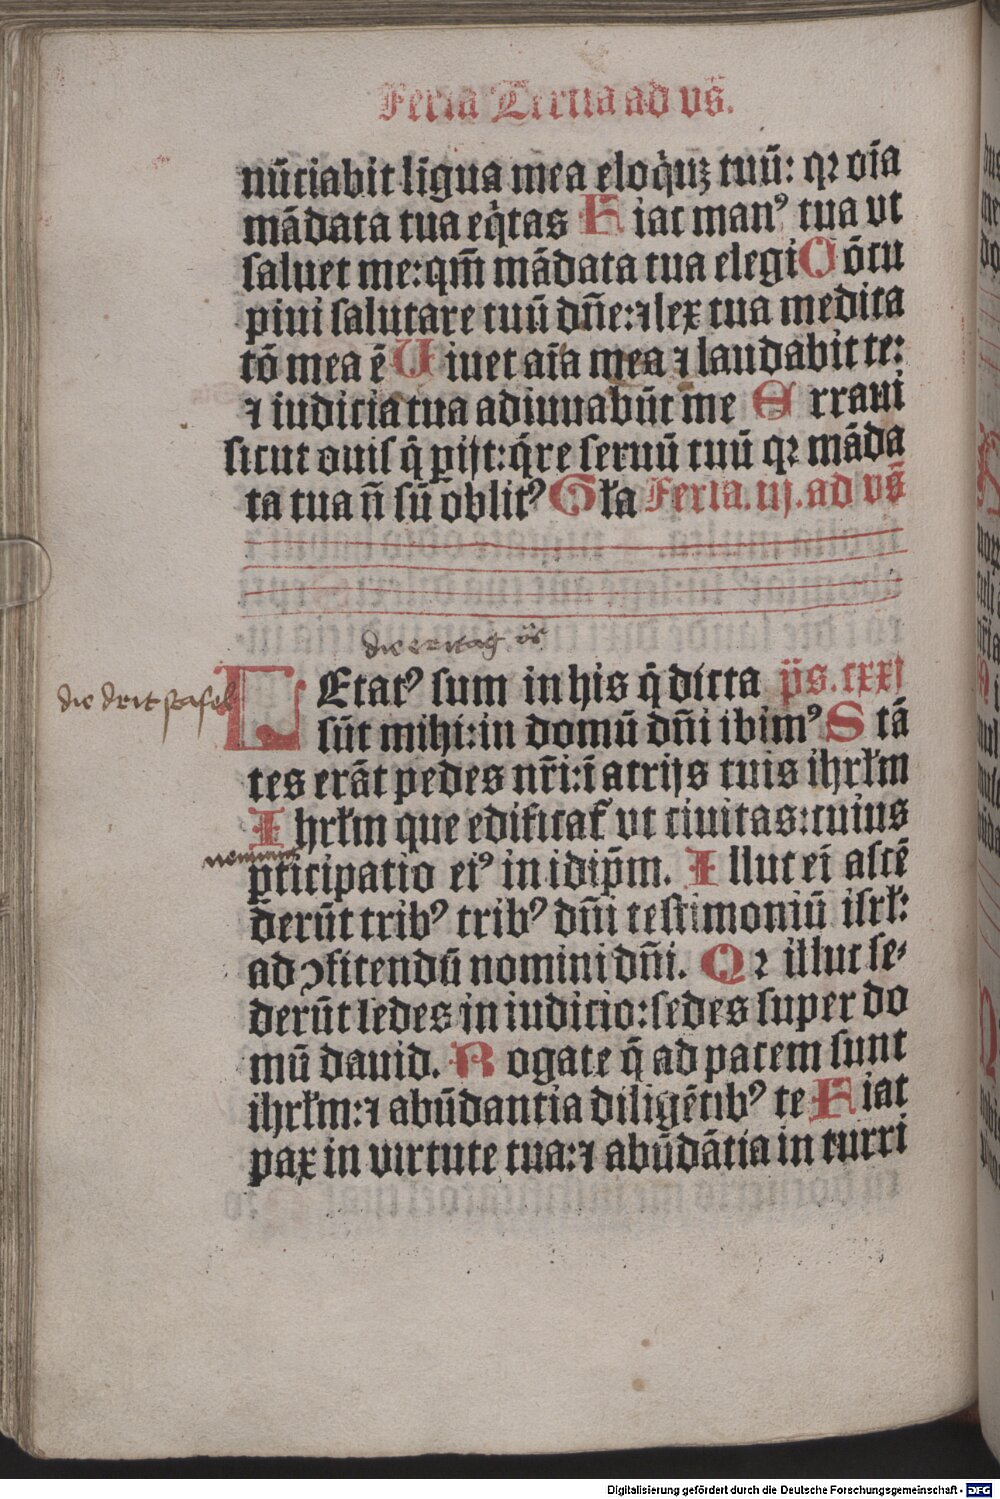 Feria Tertia ad vs̄.
nūciabit ligua mea eloq̇uꝫ tuū: qꝛ oīa
mādata tua eq̇tas Fiat manꝰ tua vt
saluet me:qm̄ mādata tua elegi Cōcu
piui salutare tuū dn̄e:⁊ lex tua medita
tō mea ē Uiuet aīa mea ⁊ laudabit te:
⁊ iudicia tua adiuuabūt me Erraui
sicut ouis q̄ ꝑijt:q̄re seruū tuū qꝛ māda
ta tua n̄ sū oblitꝰ Gła Feria.iij.ad vs̄
die eritag vs̄
die drit stafel
LEtatꝰ sum in his q̄ dicta ps̄.cxxj
sūt mihi:in domū dn̄i ibimꝰ Stā
tes erāt pedes nr̄i:ī atrijs tuis ihrłm
Ihrłm que edificaẜ vt ciuitas:cuius
ꝑticipatio eiꝰ in idip̄m. Illuc ei̅ ascē
derūt tribꝰ tribꝰ dn̄i testimoniū isrł:
ad ꝯfitendū nomini dn̄i. Qꝛ illuc se⸗
derūt sedes in iudicio:sedes super do
mū dauid. Rogate q̄ ad pacem sunt
ihrłm:⁊ abūdantia diligētibꝰ te Fiat
pax in virtute tua:⁊ abūdātia in turri
Digitalisierung gefördert durch die Deutsche Forschungsgemeinschaft - DFG